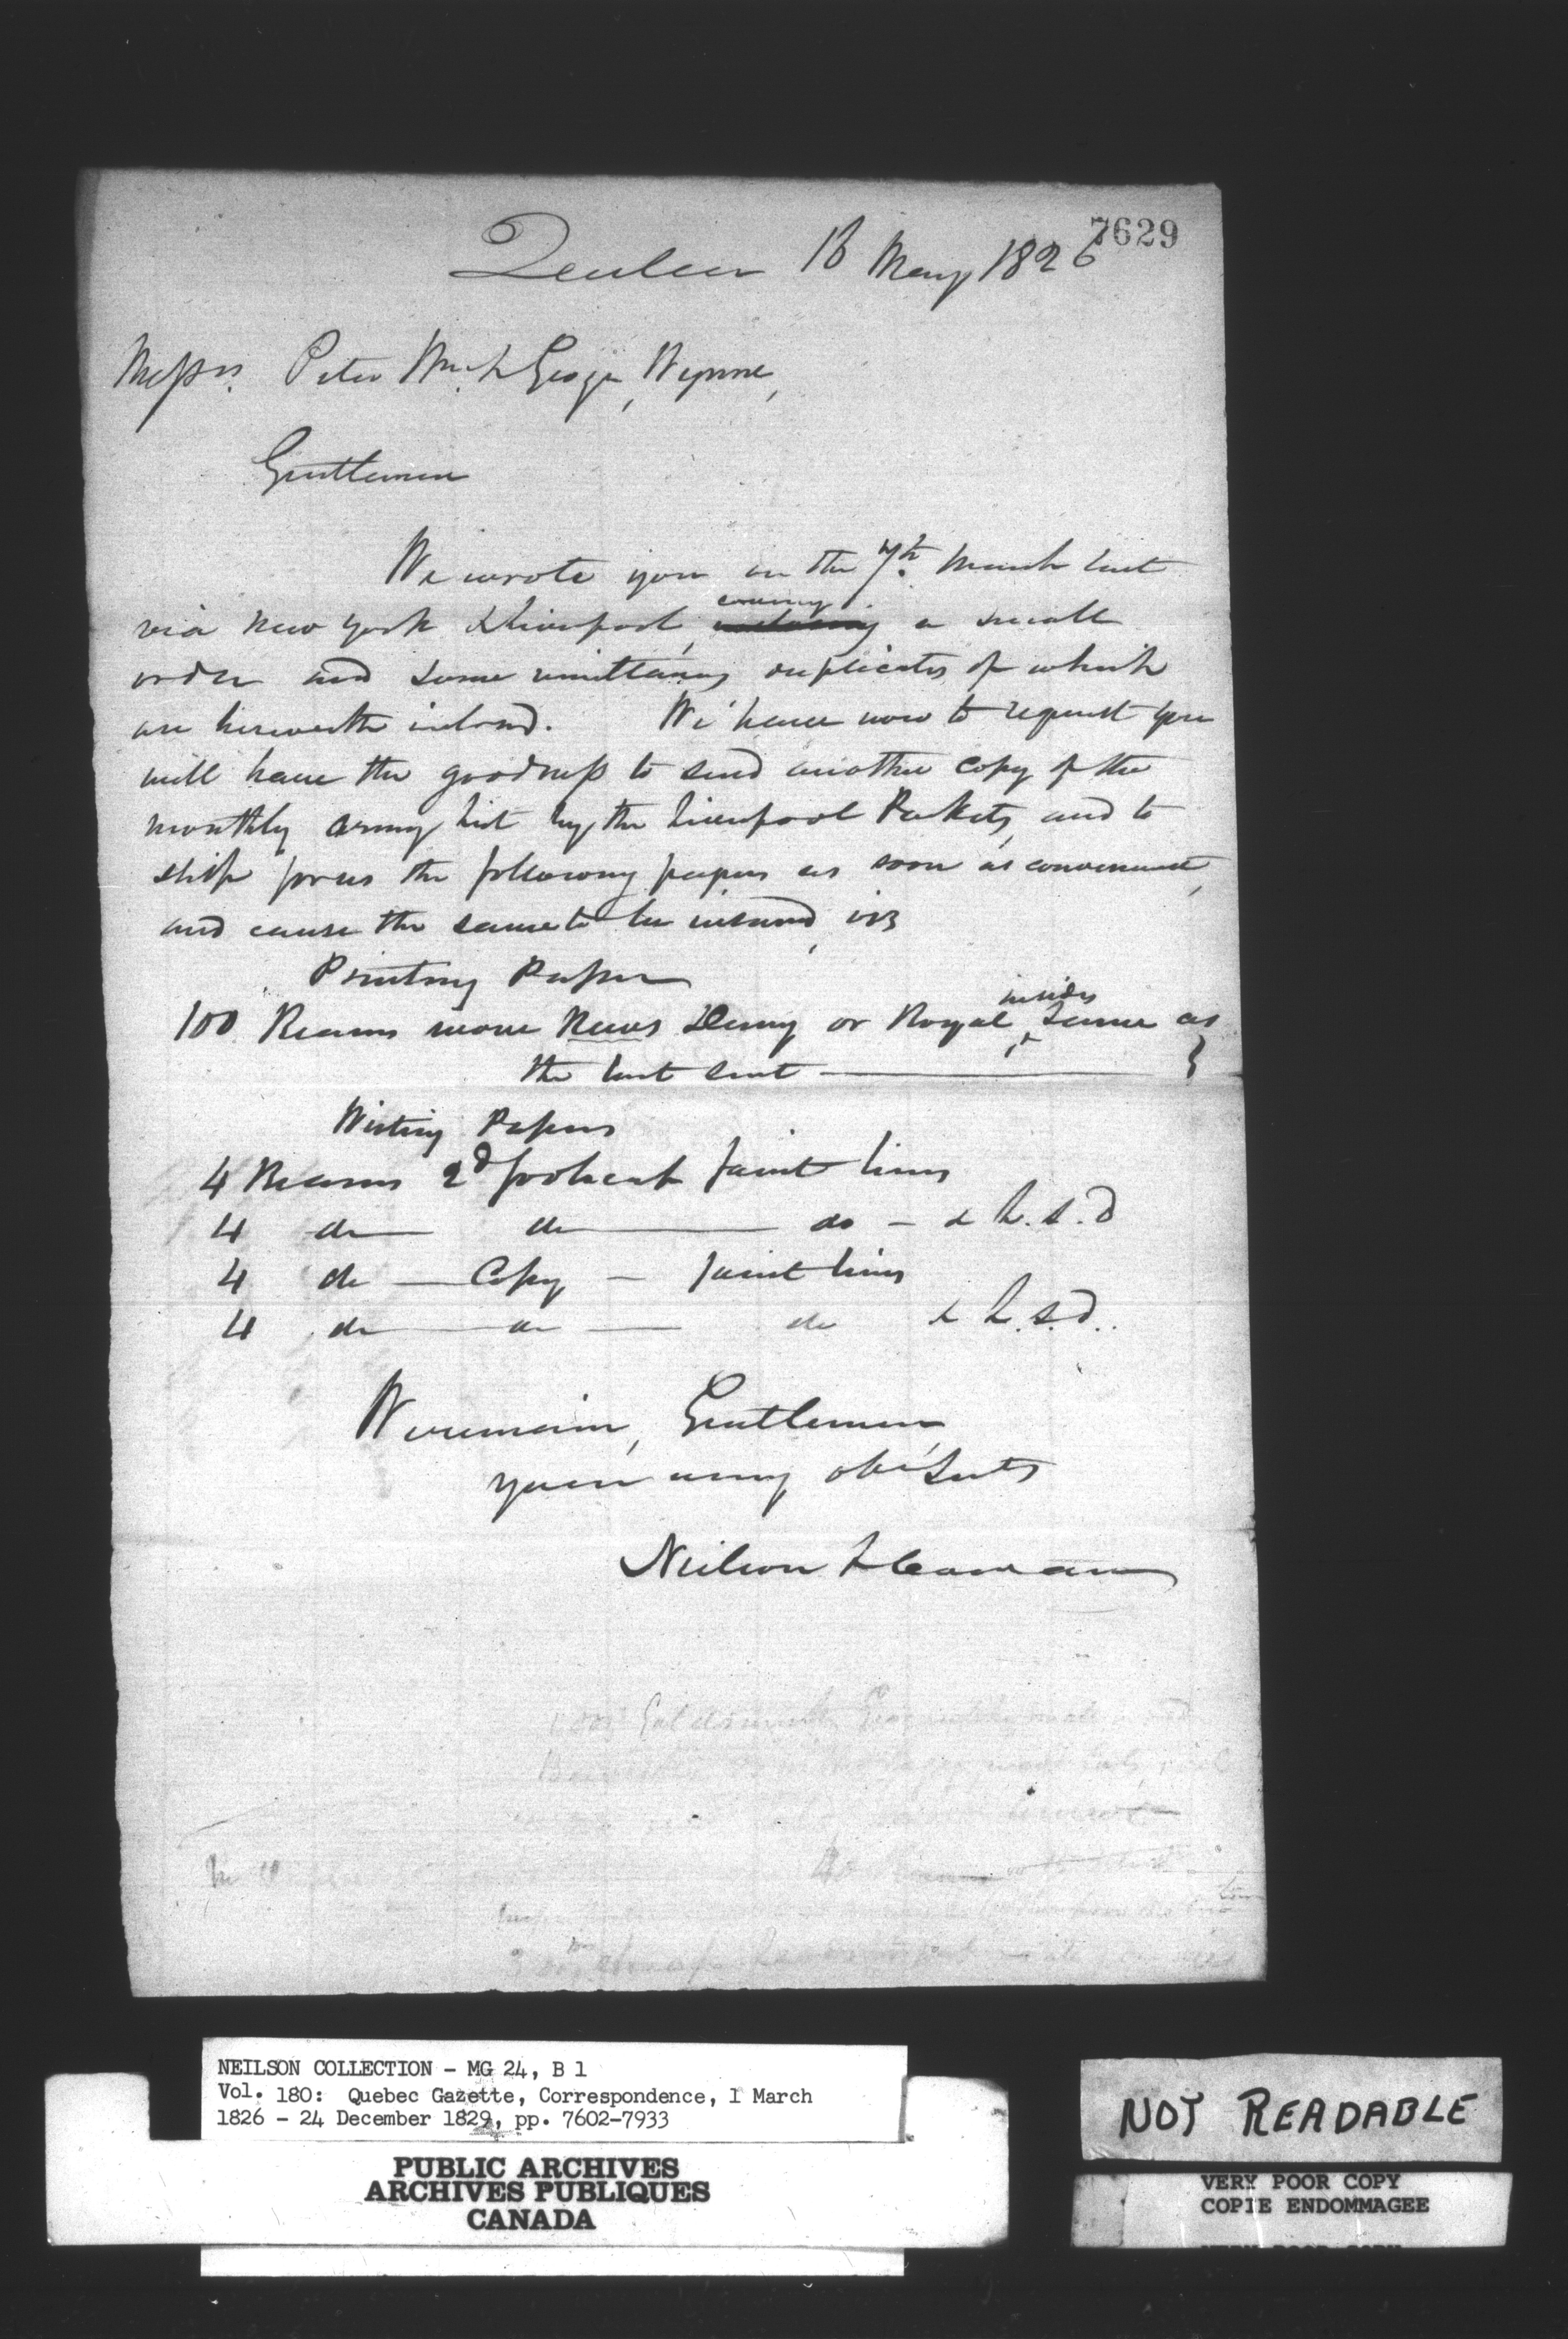 7629
Quebec 16 May 1826
Messrs. Peter Wm. & George Wynne,
Gentlemen
We wrote you on the 7th. March last
via New York & Liverpool, covering a small
order and some remittances duplicates of which
are herewith inclosed. We have now to request you
will have the goodness to send another copy of the
monthly army list by the Liverpool Packets, and to
ship for us the following papers as soon as convenient,
and cause the same to be insured, viz
Printing Paper
100 Reams wove News Demy or Royal, insides same as
the last sent
Writing Papers
4 Reams 2d foolscap faint lines
4 do do do - & L.s.d
4 do Copy - faint lines
4 do do do & L.s.d.
We remain, Gentlemen,
your very obt Servts
Neilson & Cowan
NEILSON COLLECTION - MG 24, B 1
Vol. 180: Quebec Gazette, Correspondence, 1 March
1826 - 24 December 1829, pp. 7602-7933
PUBLIC ARCHIVES
ARCHIVES PUBLIQUES
CANADA
NOT READABLE
VERY POOR COPY
COPIE ENDOMMAGEE